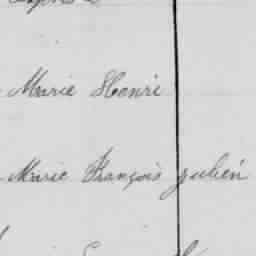 Marie Henri
Marie François Julien